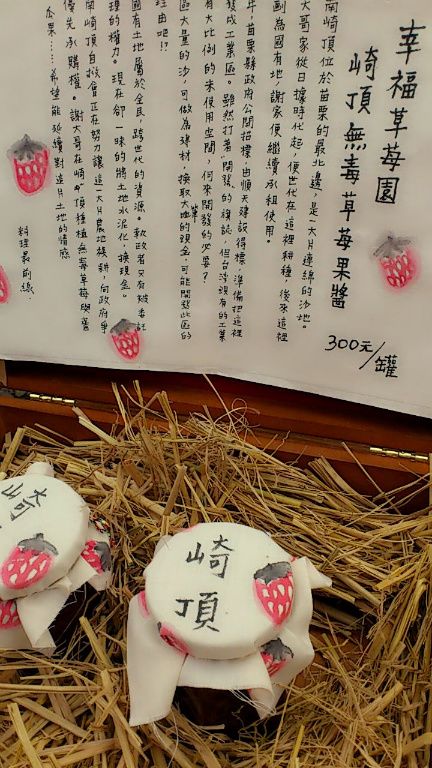 幸福草莓園
崎頂無毒草莓果醬
300元/罐
南崎頂位於苗栗的最北邊,是一大片連綿的沙地。
大哥家從日據時代起,便世代在這裡耕種,後來這裡
劃為國有地,謝家便繼續承租使用。
年,苗栗縣政府公開招標,由順天建設得標,準備把這裡
發成工業區。雖然打著"開發"的旗誌,但台灣現有的工業
有大比例的未使用空間,何來開發的必要?
區大量的沙,可做為建材,換取大筆的現金,可能開發此區的
理由吧!?
國有土地屬於全民,跨世代的資源。執政者只有被委託
理的權力。現在卻一味的將土地水泥化,換現金。
南崎頂自救會正在努力讓這一大片農地復耕,向政府爭
優先承購權。謝大哥在崎頂種植無毒草莓與醬
瓜果……希望能延續對這片土地的情感
料理最前線.
崎頂
崎頂